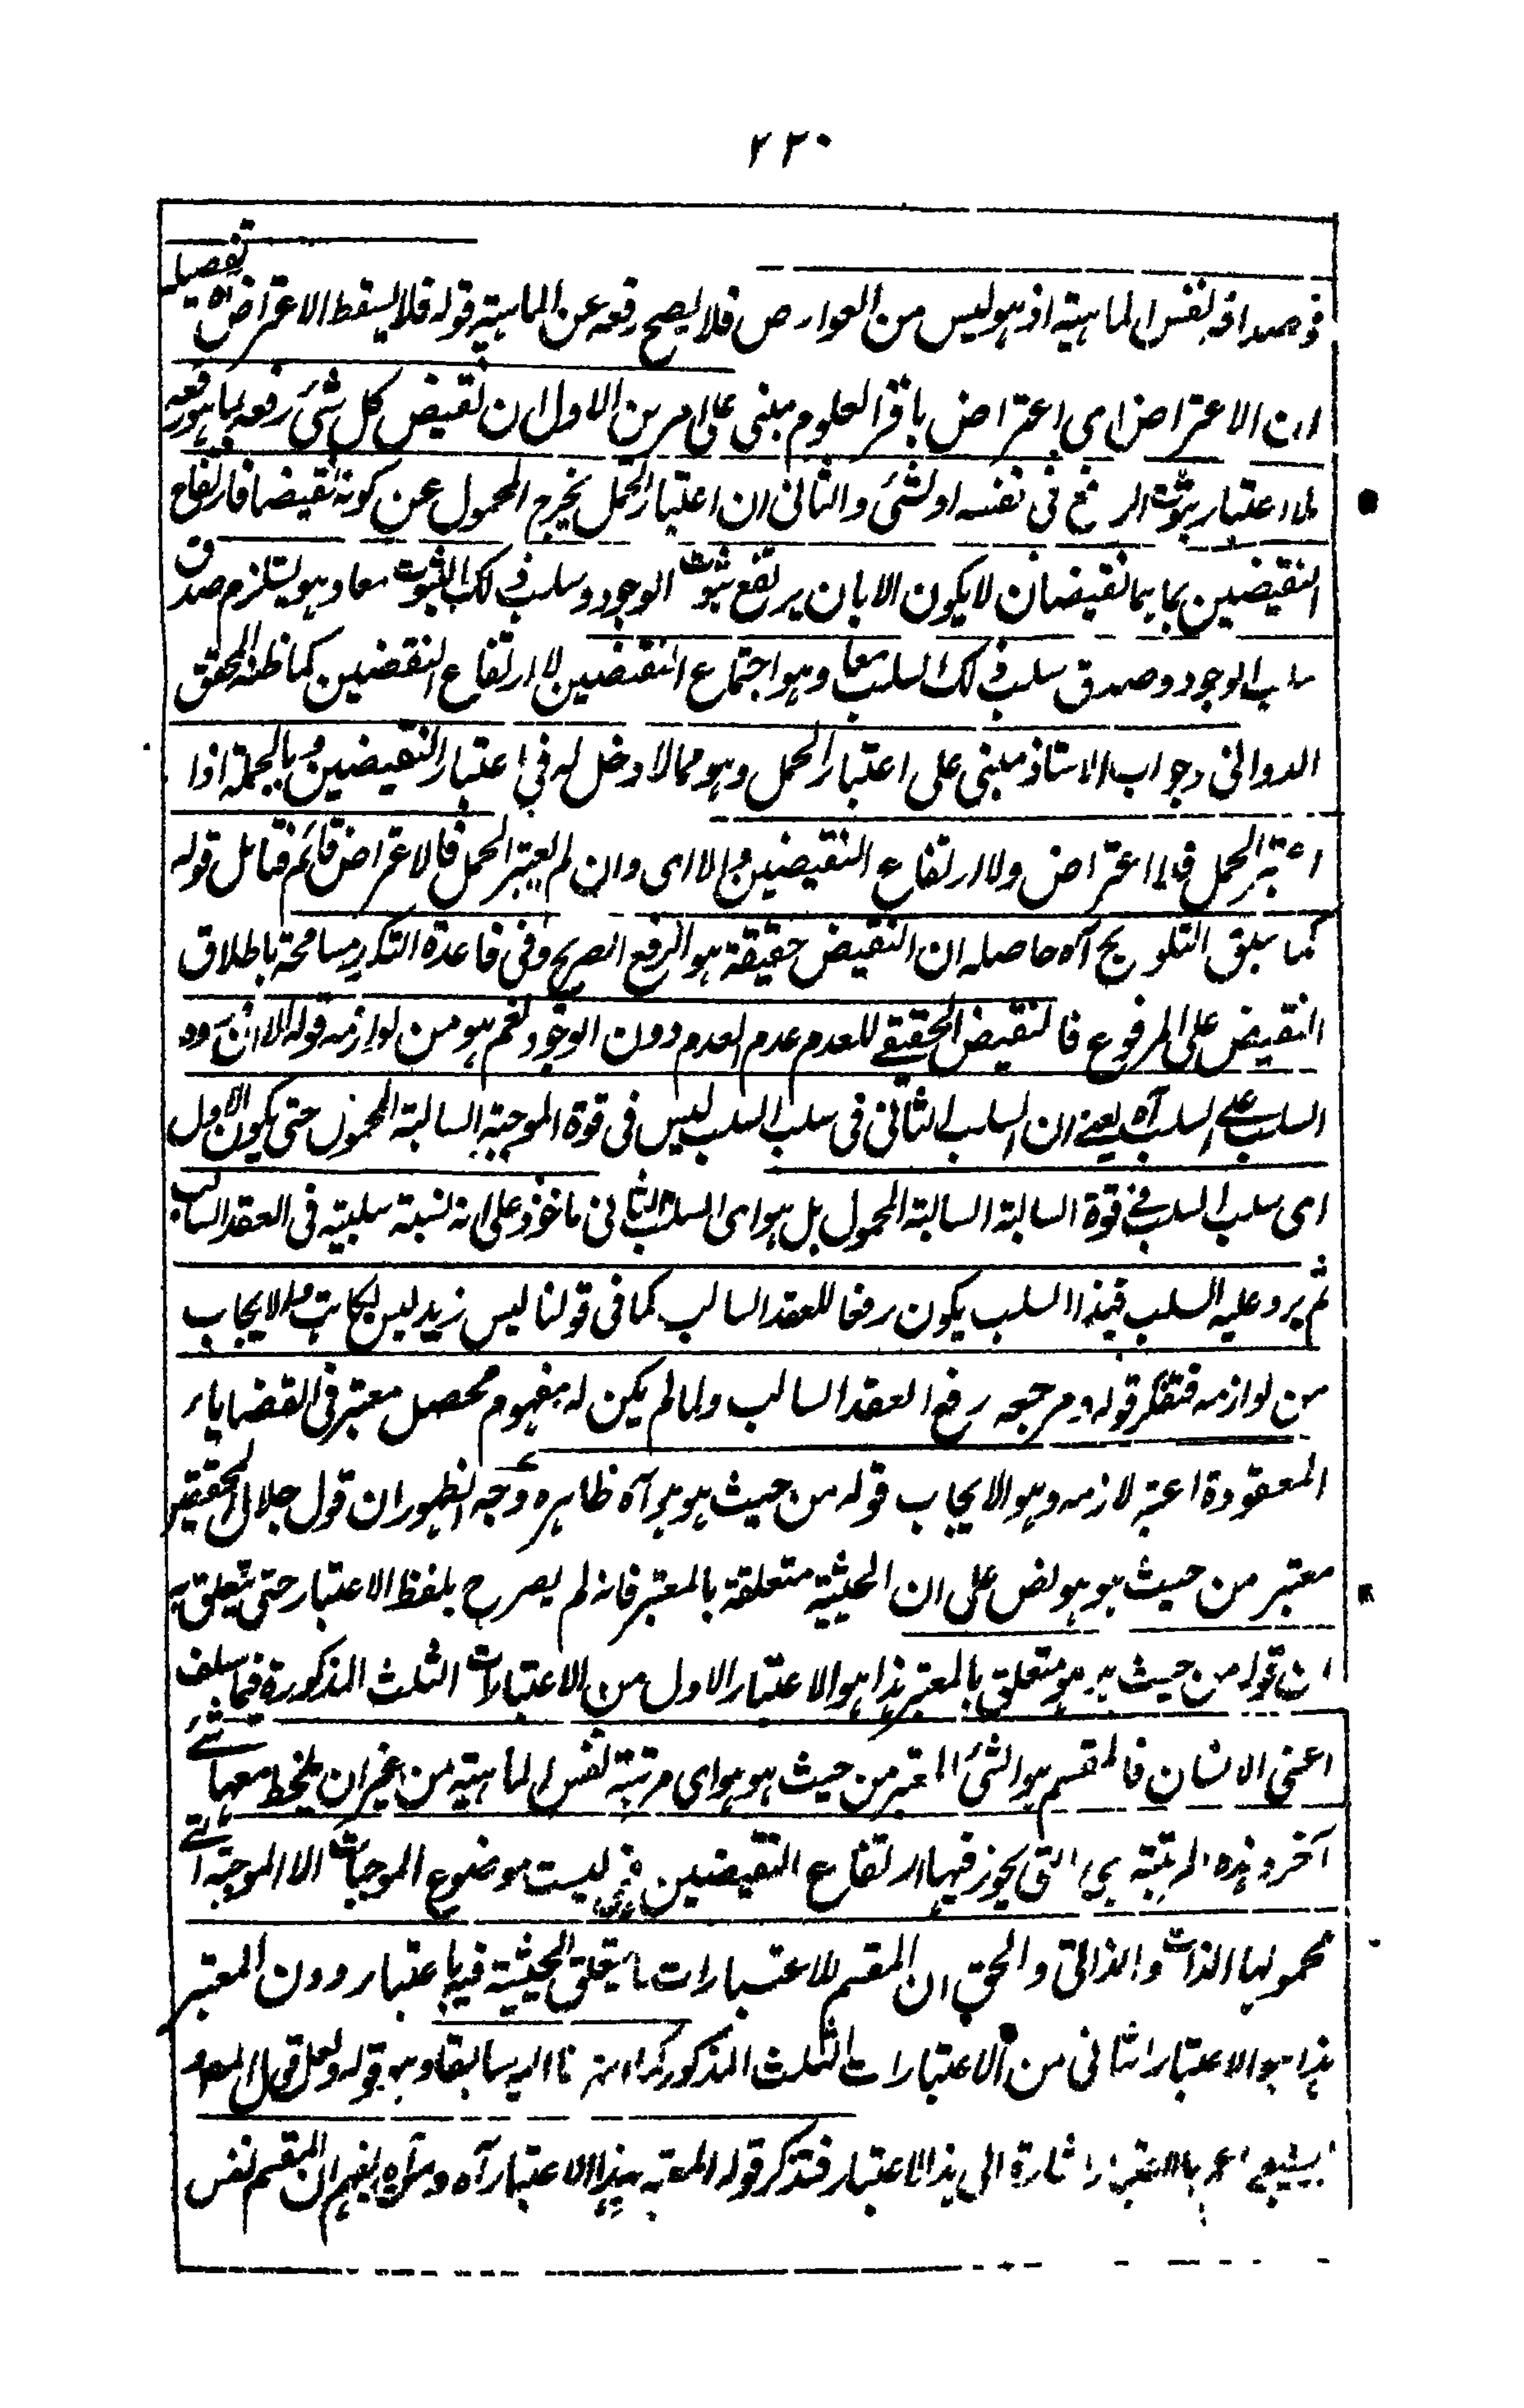 ٢٣٠
فمصداقه نفس الماهية اذ هو ليس من العوارض فلا يصح رفعه عن الماهية قوله فلا يسقط الاعتراض آه تفصيله
ان الاعتراض اي اعتراض باقر العلوم مبنى على امرين الاول ان نقيض كل شئ رفعه بما هو رفعه
بلا اعتبار ثبوت الرفع فى نفسه او لشئ والثانى ان اعتبار الحمل يخرج المحمول عن كونه نقيضا فارتفاع
النقيضين بما هما نقيضان لا يكون الا بان يرتفع ثبوت الوجود وسلب ذلك الثبوت معا وهو يستلزم صدق
سلب الوجود وصدق سلب ذلك السلب معا وهو اجتماع النقيضين لا ارتفاع النقيضين كما ظنه المحقق
الدوانى وجواب الاستاذ مبنى على اعتبار الحمل وهو مما لا دخل له في اعتبار النقيضين وبالجملة اذا
اعتبر الحمل فلا اعتراض ولا ارتفاع النقيضين والا اى وان لم يعتبر الحمل فالاعتراض قائم فتامل قوله
كما سبق التلويح آه حاصله ان النقيض حقيقة هو الرفع الصريح وفى قاعدة التكرر مسامحة باطلاق
النقيض على المرفوع فالنقيض الحقيقے للعدم عدم العدم دون الوجود نعم هو من لوازمه قوله الا ان ورود
السلب علے السلب آه يعنے ان السلب الثانى فى سلب السلب ليس فى قوة الموجبة السالبة المحمول حتى يكون الاول
اى سلب السلب فے قوة السالبة السالبة المحمول بل هو اى السلب الثانى ماخوذ على انه نسبة سلبية فى العقد السالب
ثم يرد عليه السلب فهذا السلب يكون رفعا للعقد السالب كما فى قولنا ليس زيد ليس بكاتب والايجاب
من لوازمه فتفكر قوله ومرجعه رفع العقد السالب ولما لم يكن له مفهوم محصل معتبر فى القضايا
المعقودة اعتبر لازمه وهو الايجاب قوله من حيث هو هو آه ظاهره وجه الظهور ان قول جلال المحققين
معتبر من حيث هو هو نص على ان الحيثية متعلقة بالمعتبر فانه لم يصرح بلفظ الاعتبار حتى يتعلق به
ان قوله من حيث هو هو متعلق بالمعتبر هذا هو الاعتبار الاول من الاعتبارات الثلث المذكورة فيما سلف
اعنى الانسان فالمقسم هو الشئ المعتبر من حيث هو هو اى مرتبة نفس الماهية من غير ان يلحظ معها شئے
آخر وهذه المرتبة هى التى يجوز فيها ارتفاع النقيضين فهى ليست موضوع الموجبات الا الموجبة التے
محمولها الذات والذاتى والحق ان المقسم للاعتبارات ما يتعلق الحيثية فيه باعتبار دون المعتبر
هذا هو الاعتبار الثانى من الاعتبارات الثلث المذكور كما اشرنا اليه سابقا وهو قوله ولعل قول
اشارة الى هذا الاعتبار فتذكر قوله المعتبر بهذا الاعتبار آه ومرآه يفهم ان المقسم نفس